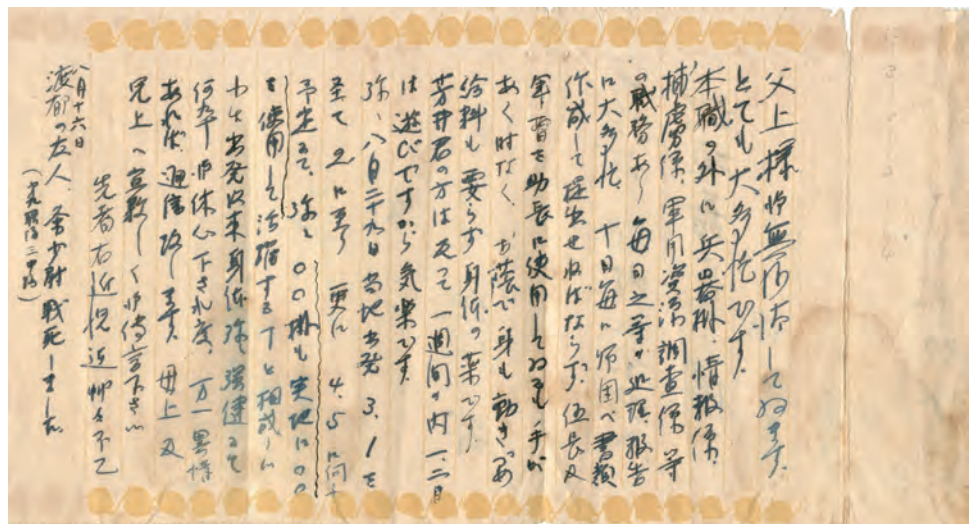 父上様 御無沙汰してゐます。
とても大多忙です。
本職の外に兵器掛、情報係、
捕虜係、軍用資源調査係等
の職務あり 毎日之等の処理、報告
に大多忙、十日毎に師団へ書類
作成して提出せねばならず、伍長及
軍曹を助長に使用してゐるも手が
あく時なく お蔭で身も動きづめ
給料も要らず身体の薬です。
芳井君の方は反って一週間の内一、二日
は遊びですから気楽です。
弥々八月二十九日当地出発 3、1を
至て 2に至り 更に 4、5に向ふ
予定にて、弥々〇〇掛も実地に〇〇
を使用して活躍する事と相成り
小生出発以来身体弥々強健にて
何卒御休心下され度、万一異情
あれば通信致します。母上及
兄上へ宜敷しく御伝言下さい
先者右近況迄 艸々不乙
八月十六日
渡郁の友人、 少尉戦死しました。